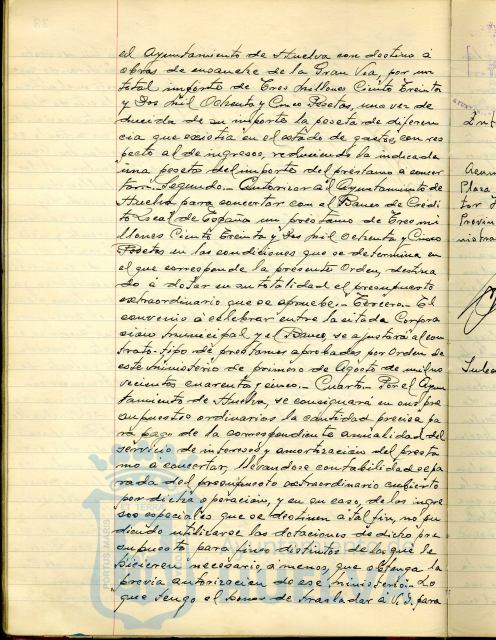 el Ayuntamiento de Huelva con destino á
obras de ensanche de la Gran Via, por un
total importe de Tres Millones Ciento Treinta
y Dos Mil Ochenta y Cinco Pesetas, una vez de
ducida de su importe la peseta de diferen
cia que existia en el estado de gastos, con res
pecto al de ingresos, reduciendo la indicada
una peseta del importe del prestamo a concer
tar.- Segundo.- Autorizar al Ayuntamiento de
Huelva para concertar con el Banco de Crédi
to Local de España un préstamo de Tres mi
llones Ciento Treinta y Dos Mil Ochenta y Cinco
Pesetas en las condiciones que se determina en
el que corresponde la presente Orden, destina
do á dotar en su totalidad el presupuesto
extraordinario que se apruebe.- Tercero.- El
convenio á celebrar entre la citada Corpora
cion Municipal y el Banco, se ajustará al con
trato-tipo de prestamos aprobados por Orden de
este Ministerio de primero de Agosto de mil no
vecientos cuarenta y cinco.- Cuarto.- Por el Ayun
tamiento de Huelva, se consignará en sus pre
supuestos ordinarios la cantidad precisa pa
ra pago de la correspondiente anualidad del
servicio de intereses y amortizacion del presta
mo a concertar, llevandose contabilidad sepa
rada del presupuesto extraordinario cubierto
por dicha operacion, y en su caso, de los ingre
sos especiales que se destinen a tal fin, no pu
diendo utilizarse las dotaciones de dicho pre
supuesto para fines distintos de los que le
hicieren necesario, a menos, que obtenga la
previa autorizacion de ese Ministerio.- Lo
que tengo el honor de trasladar á V.I. para
Plaza
tor
Provin
nistra
PORTUS MARIS
ET TERRÆ
Ayuntamiento